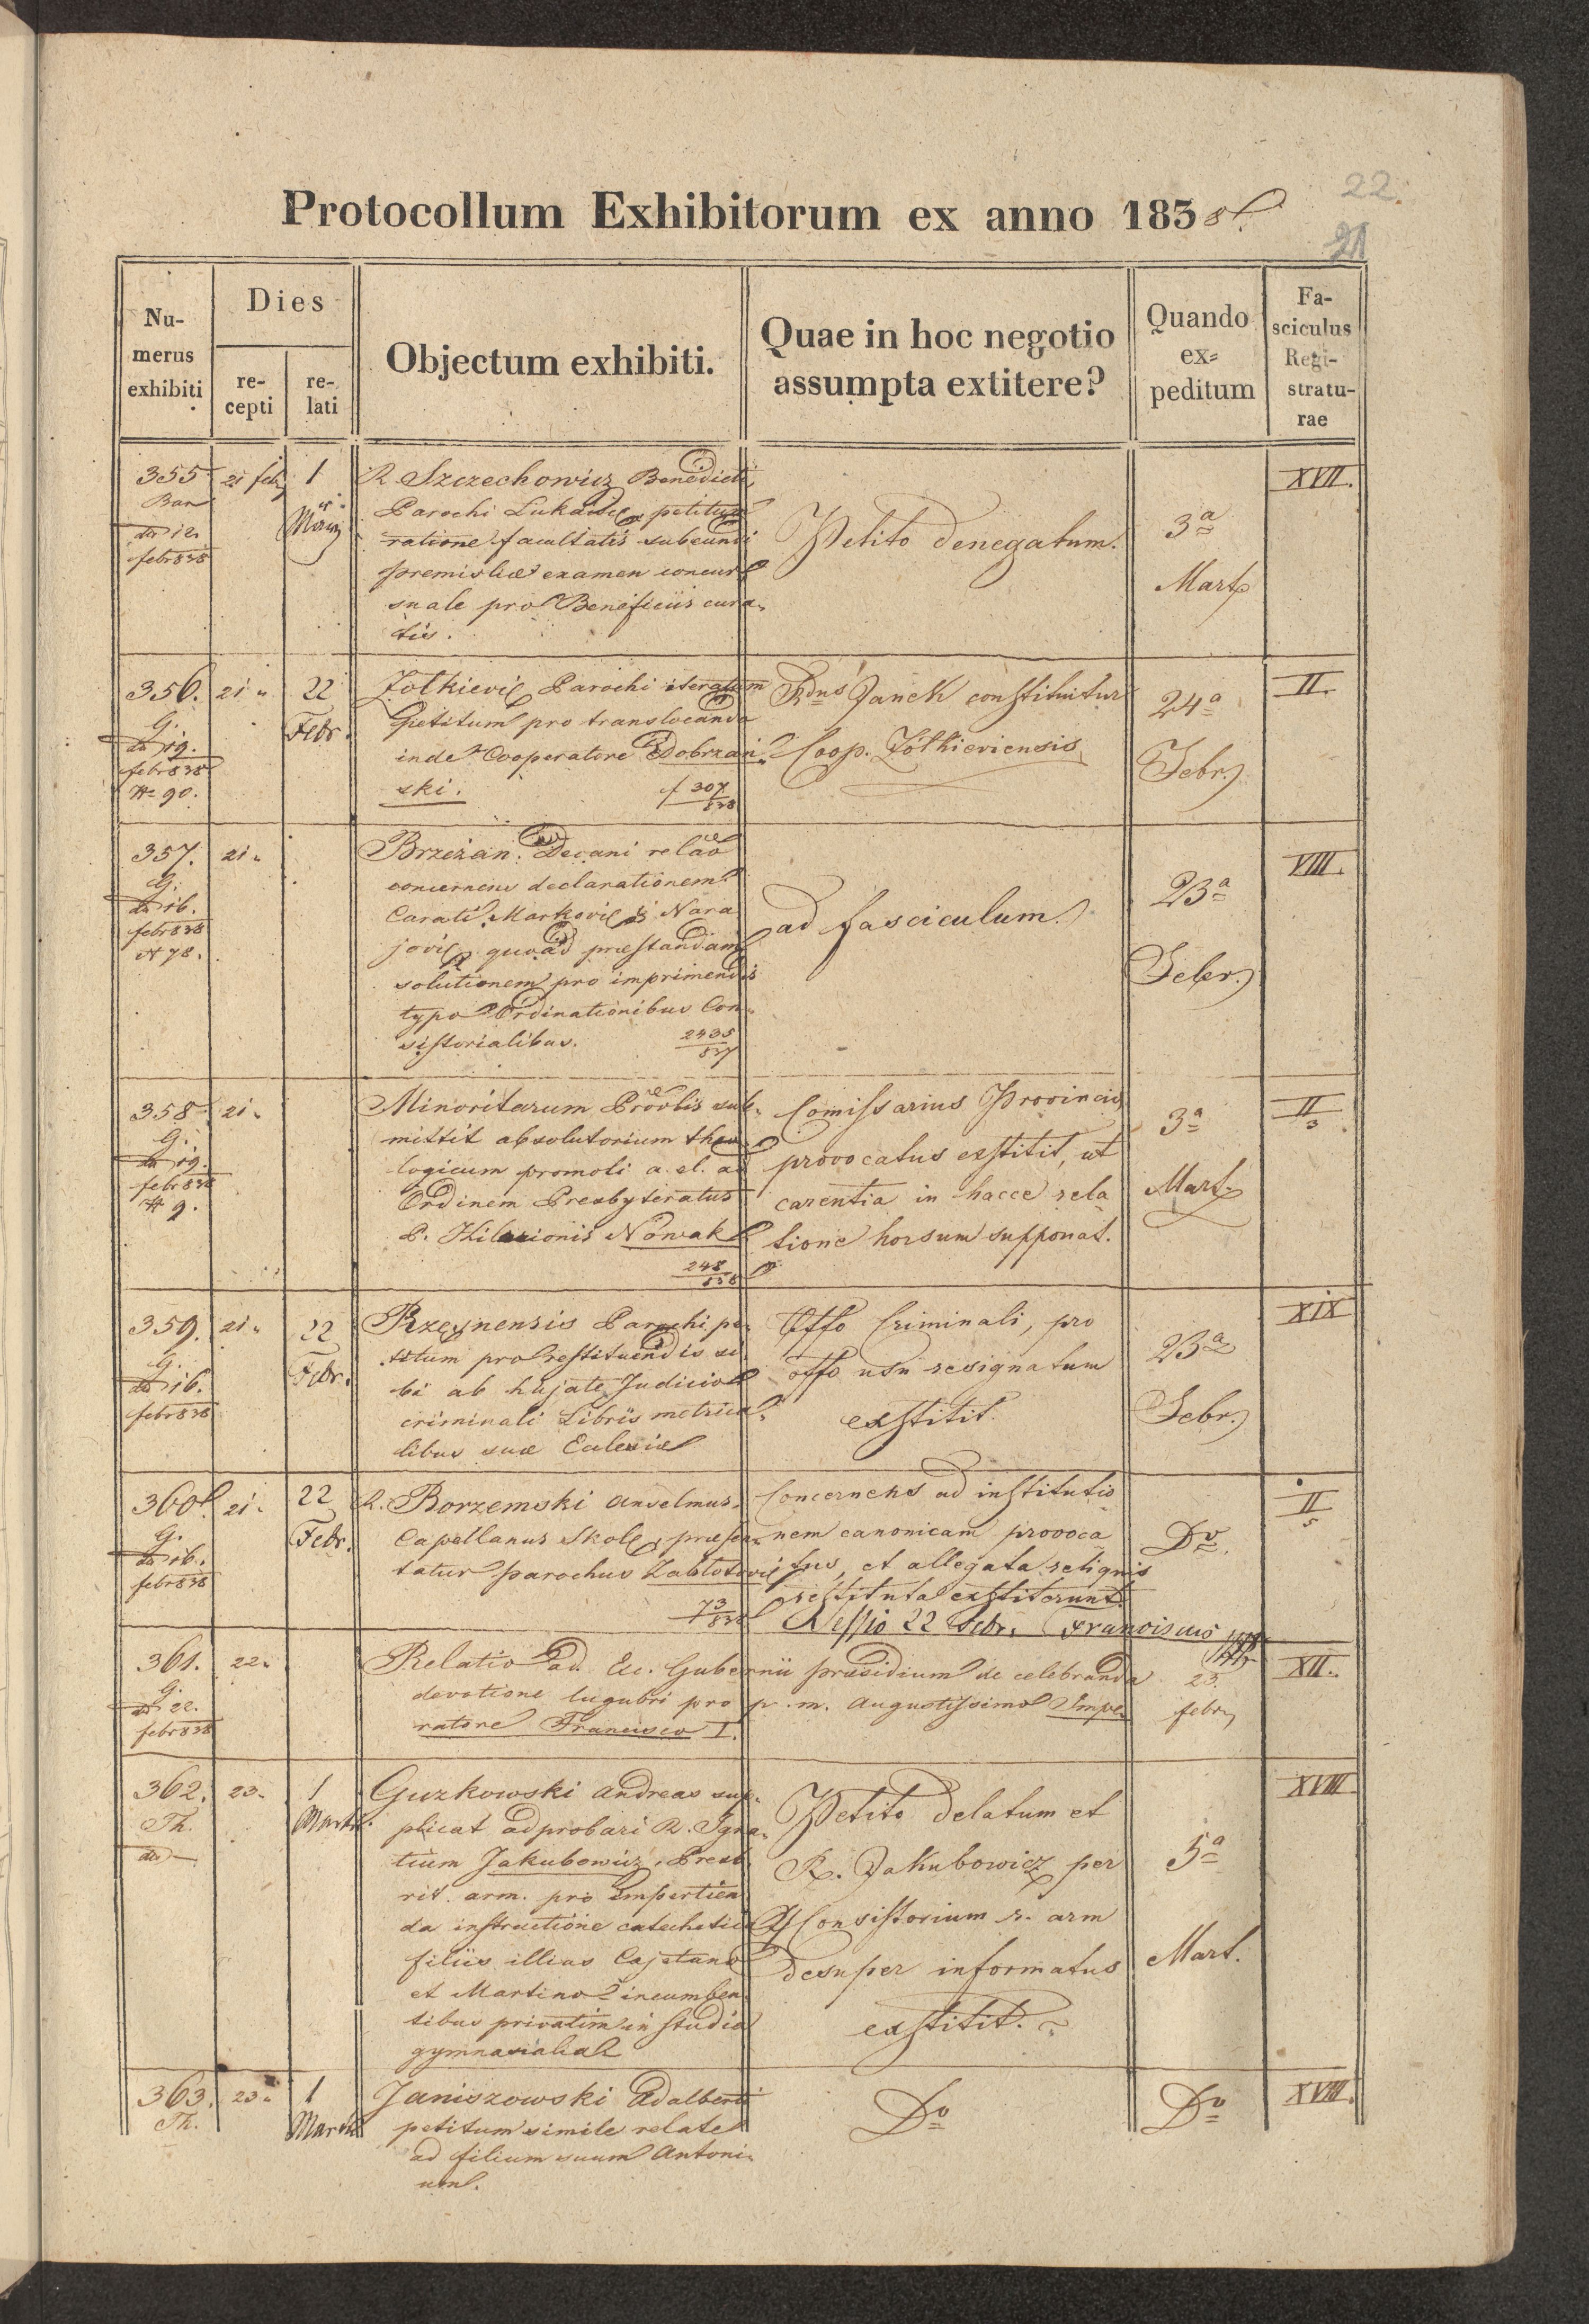 22.
21
Protocollum Exhibitorum ex anno 1838.
Nu-
merus
exhibiti
Dies
re-
cepti
re-
lati
Objectum exhibiti.
Quae in hoc negotio
assumpta extitere?
Quando
ex-
peditum
Fa-
sciculus
Regi-
stratu-
rae
355
21 febr
1
R. Szczechowicz Benedicti
Parochi petitum
ratione facultatis subeundi
premisliae examen concur
suale pro Beneficiis cura-
tis.
dto 12
febr 838
Petito denegatum.
3a
Mart
XVII.
356.
G.
dto 19.
febr 838
N 90.
21 "
22
Febr.
Zolkievi Parochi iteratum
petitum pro translocando
inde Cooperatore Dobrzań-
ski.
307
838
Rdus Janek constituitur
Coop. Zolkieviensis
24a
Febr.
II.
357.
G.
dto 16.
febr 838
N 78.
21 "
Brzeżan. Decani relao
concernens declarationem
Curati Markovi & Nara
jovi quoad praestandam
solutionem pro imprimendis
typo Ordinationibus Con-
sistorialibus.
2435
837
ad fasciculum.
23a
Febr.
VIII.
358
G.
dto 19.
febr 838
N 9.
21 "
Minoritarum Provlis sub-
mittit absolutorium theo-
logicum promoti a. el. ad
Ordinem Presbyteratus
P. Hilarionis Nowak
248
838
Comissarius Provincis
provocatus exstitit, ut
carentia in hacce rela
tione horsum supponat.
3a
Mart.
II
3
359.
G.
dto 16.
febr 838
21 "
22
Febr.
Rzeynensis Parochi pe-
titum pro restituendis si
bi ab hujate Judicio
criminali Libris metrica-
libus suae Eclesiae
Offo Criminali, pro
offo usu resignatum
exstitit.
23a
Febr.
XIX
360
G.
dto 16.
febr 838
21 "
22
Febr.
R. Borzemski Anselmus
Capellanus Skole, praesen-
tatur parochus Zablotovi
73
838
Concernens ad institutio
nem canonicam provoca
tus, et allegata reliquis
restituta exstiterunt.
Sessio 22 Febr. Franciscus
Do.
II
5
361.
G.
dto 22.
febr 838
22 "
Relatio ad Ec. Gubernii praesidium de celebranda
devotione lugubri pro p. m. Augustissimo Impe-
ratore Francisco I.
23.
febr
XII.
362.
Th.
dto —
23 "
1
Martii
Guzkowski Andreas sup-
plicat adprobari R. Igna-
tium Jakubowicz, Presb.
rit. arm. pro impertien
da instructione catechetica
filiis illius Cajetano
et Martino incumben
tibus privatim in studio
gymnasiali
Petito delatum et
R. Jakubowicz per
Consistorium r. arm
desuper informatus
exstitit.
5a
Mart.
XVIII
363.
Th.
23 "
1
Martii
Janiszowski Adalberti
petitum simile relate
ad filium suum Antoni-
um.
Do
Do
XVIII.